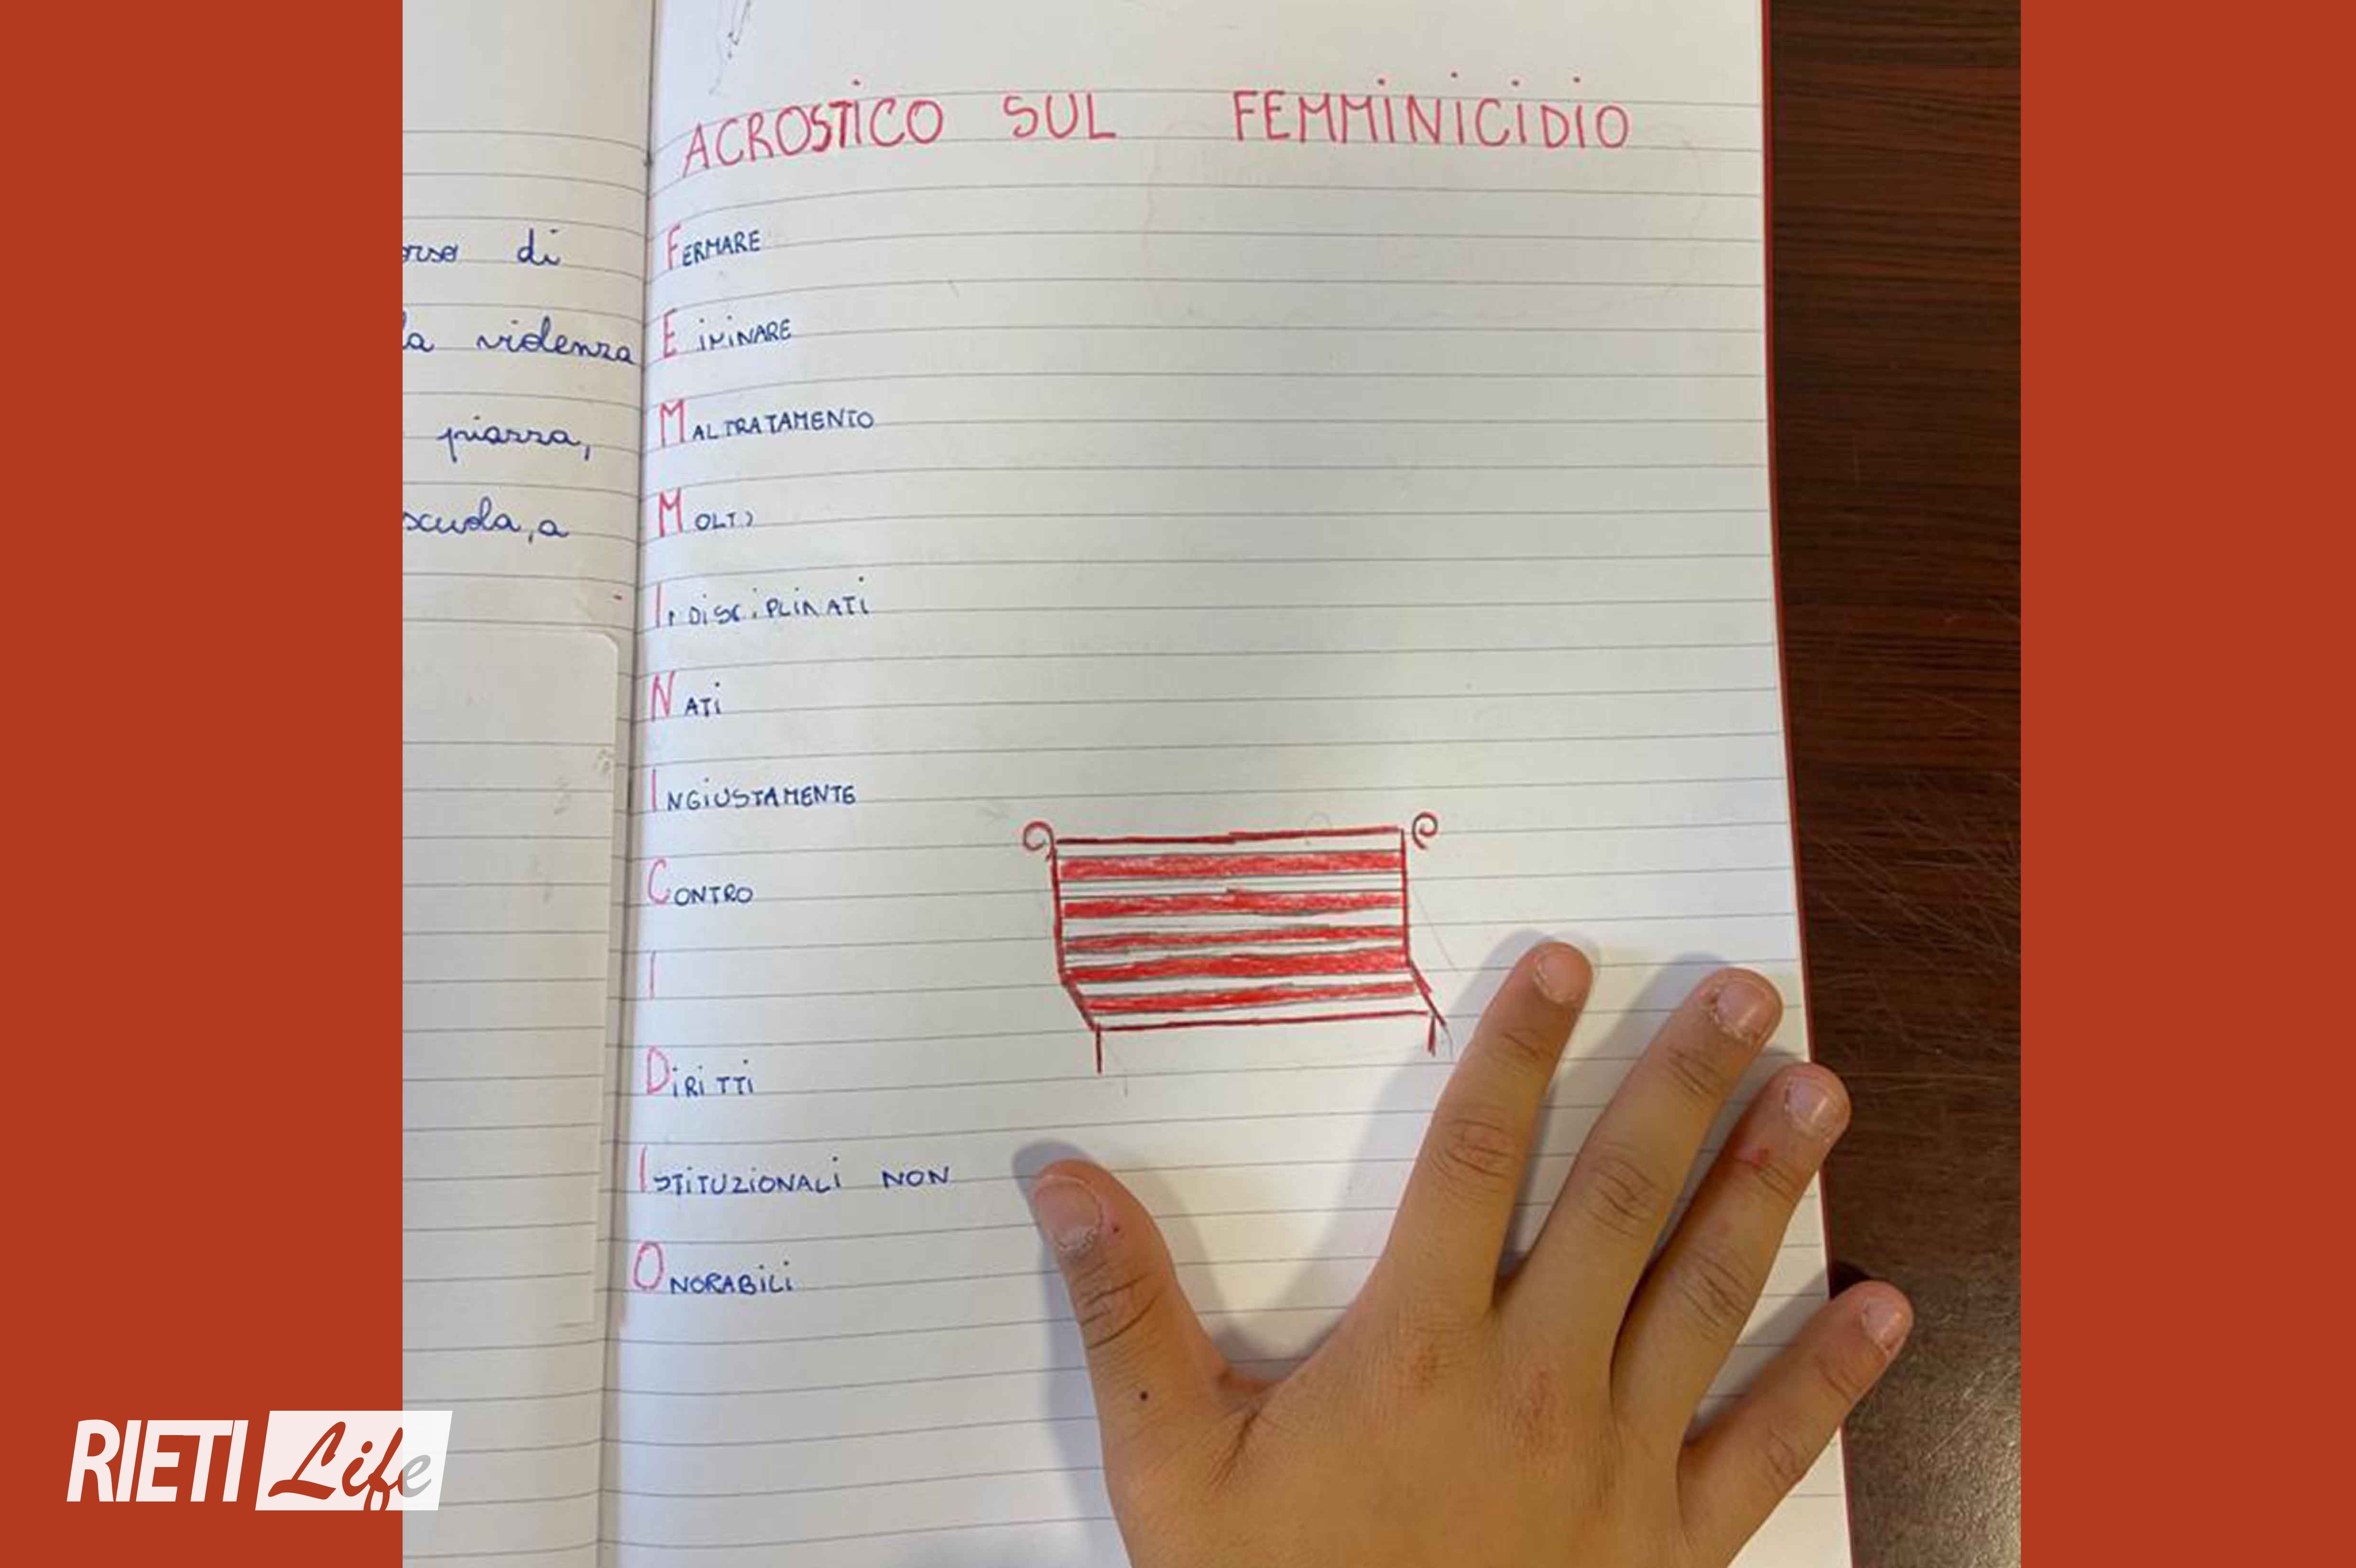 orso di
la violenza
piazza,
scuola, a
ACROSTICO SUL FEMMINICIDIO
FERMARE
E IMINARE
MALTRATAMENTO
MOLTI
INDISCIPLINATI
NATI
INGIUSTAMENTE
CONTRO
I
DIRITTI
ISTITUZIONALI NON
ONORABILI
RIETI Life